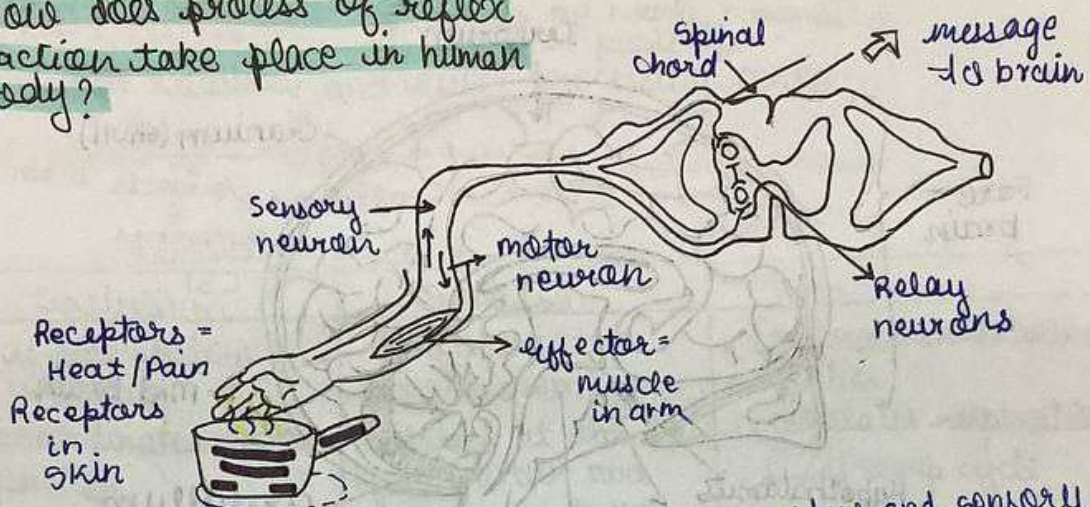 How does process of reflex
action take place in human
body?
Spinal
chord
message
to brain
Sensory
neuron
motor
neuron
Relay
neurons
Receptors =
Heat/Pain
Receptors
in
Skin
effector=
muscle
in arm
and sensory